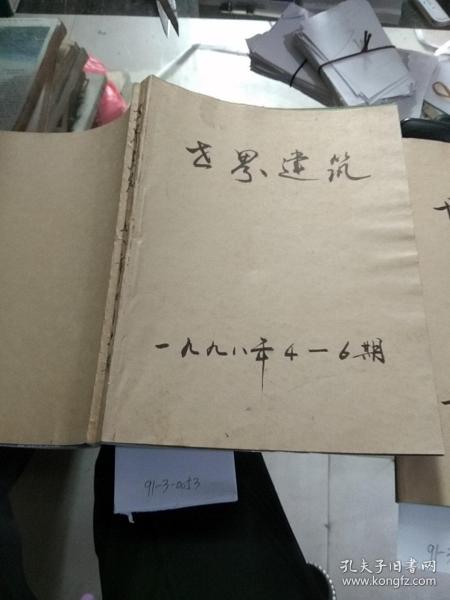 世界建筑
一九九八年4—6期
91-3-0053
91-3
孔夫子旧书网
www.kongfz.com